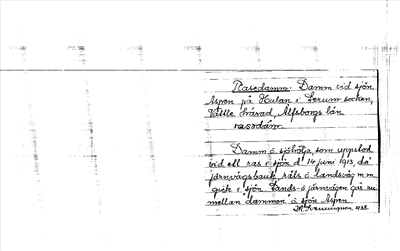 Rasedamm: Damm vid sjön
Aspen på Hulan i Lerum socken,
Vättle härad, Älfsborgs län
rasedám.
Damm å sjöhölja, som uppstod
vid ett ras i sjön d 14 juni 1913, då
järnvägsbank, räls o landsväg m.m.
gick i sjön. Lands- o järnvägen går nu
mellan dammen o sjön Aspen
1938